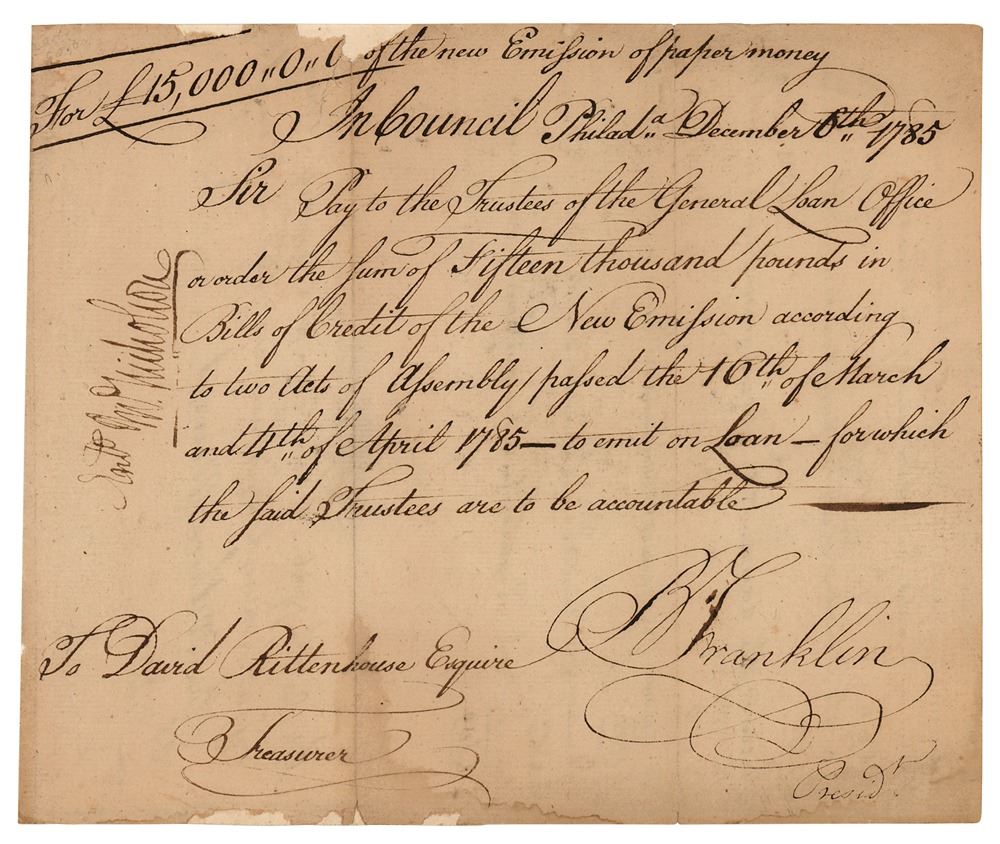 For £15,000,,0,,0 of the new Emission of paper money
In Council Philad,,a December 6th,, 1785
Sir Pay to the Trustees of the General Loan Office
or order the sum of Fifteen thousand pounds in
Bills of Credit of the New Emission according
to two Acts of Assembly / passed the 16th,, of March
and 4th,, of April 1785 — to emit on Loan — for which
the said Trustees are to be accountable
Entd Jn. Nicholson
B Franklin
To David Rittenhouse Esquire
Treasurer
Presidt